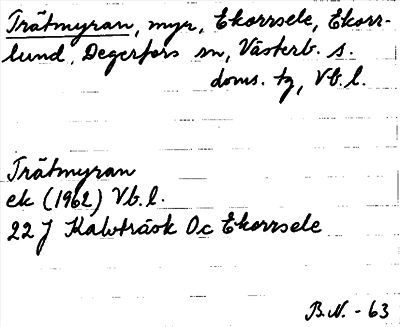 Trätmyran, myr, Ekorrsele, Ekorr-
lund, Degerfors sn, Västerb. s.
doms. tg, Vb. l.
Trätmyran
ek (1962) Vb. l.
22 J Kalvträsk Oc Ekorrsele
B.N. - 63